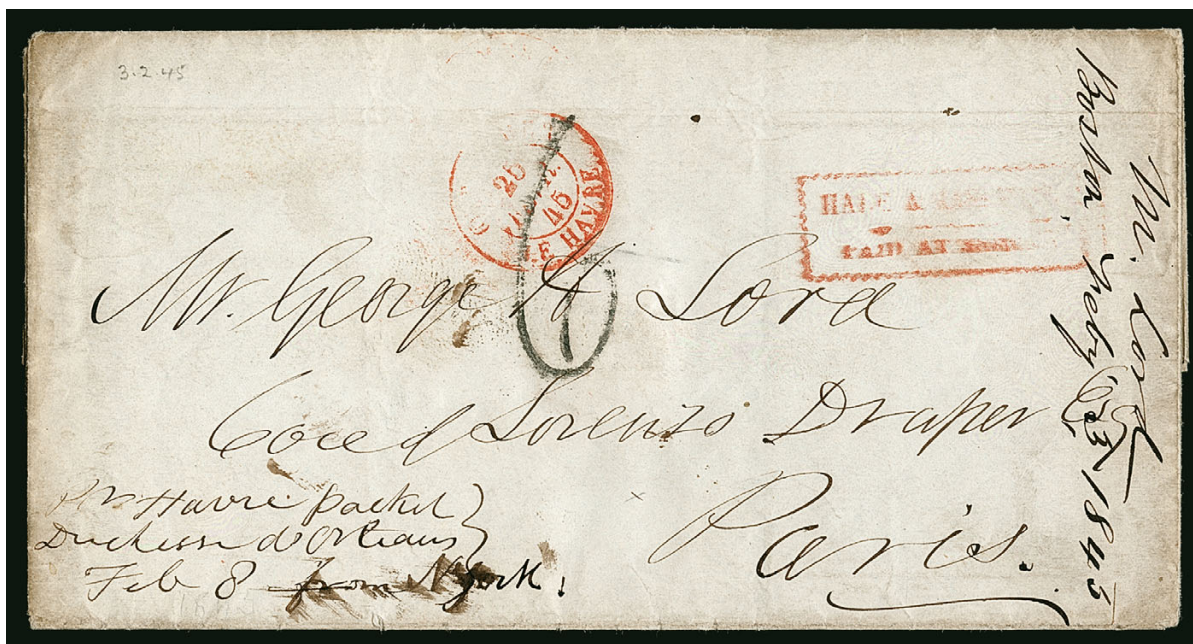 3.2.45
25
45
LE HAVRE
HALE &
PAID AT
Mr. George H Lord
Care of Lorenzo Draper
Paris.
Pr Havre packet
Duchesse d'Orleans
Feb 8 from N York.
M. Lord
Boston Feby 3 1845